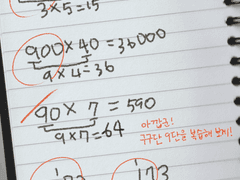 3×5=15
900×40=36000
9×4=36
90×7=590
9×7=64
아깝군!
구구단 9단을 복습해 보기!
173